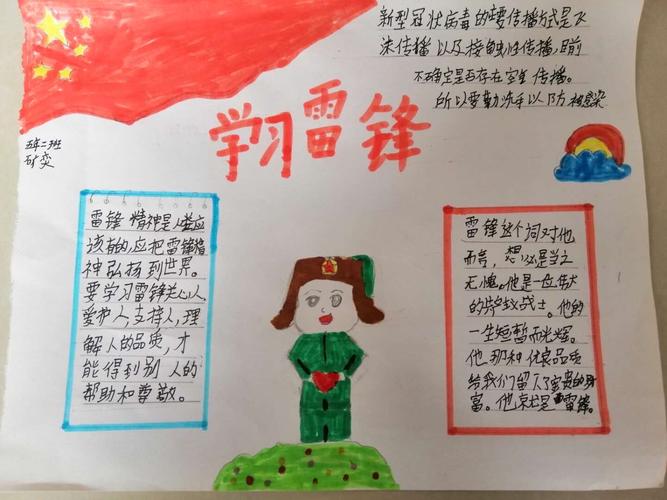 新型冠状病毒的主要传播方式是飞
沫传播以及接触性传播，目前
不确定是否存在空气传播。
所以要勤洗手以防被感染
学习雷锋
五年二班
雷锋精神是人类应
该有的，应把雷锋精
神弘扬到世界。
要学习雷锋关心人，
爱护人，支持人，理
解人的品质，才
能得到别人的
帮助和尊敬。
雷锋这个词对他
而言，想必是当之
无愧。他是一位伟大
的战士。他的
一生短暂而光辉。
他那种优良品质
给我们留下了宝贵的财
富。他就是雷锋。